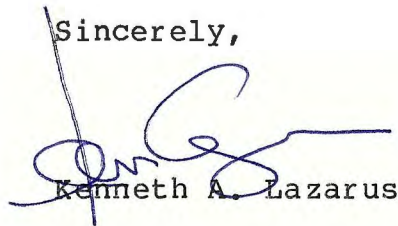 Sincerely,
Kenneth A. Lazarus